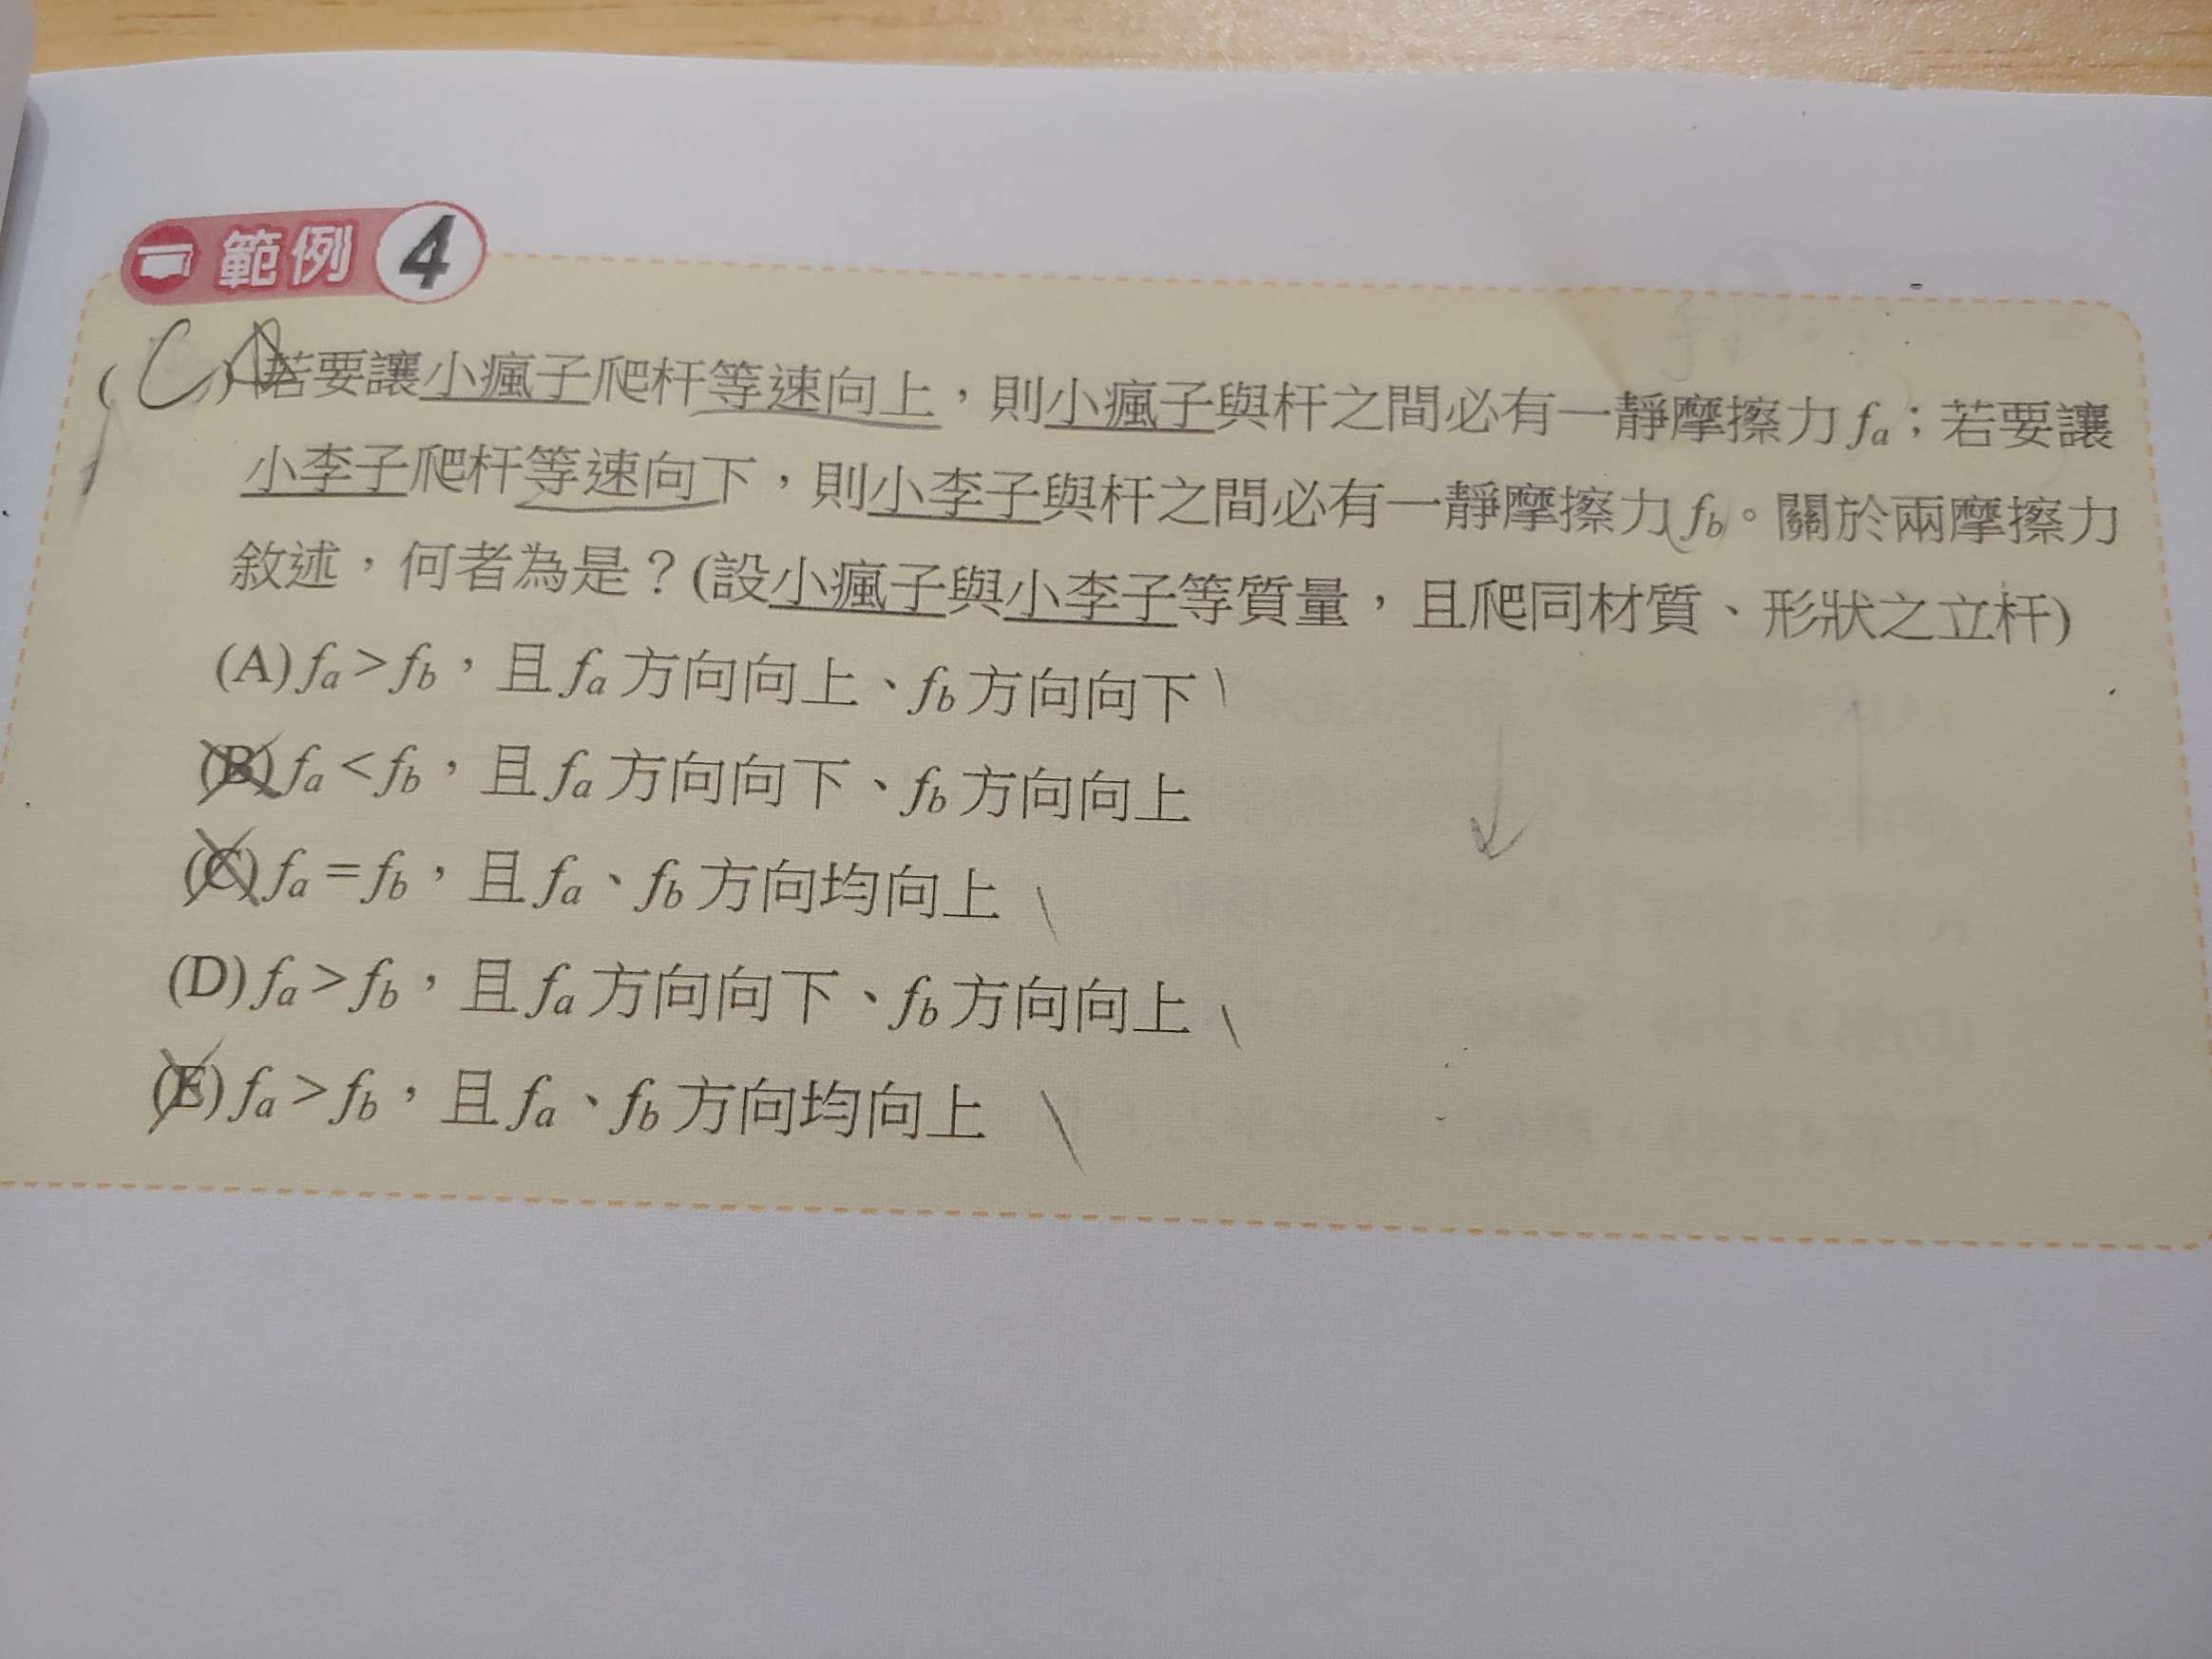 範例 4
( C ) 若要讓小瘋子爬杆等速向上，則小瘋子與杆之間必有一靜摩擦力 fa；若要讓
小李子爬杆等速向下，則小李子與杆之間必有一靜摩擦力 fb。關於兩摩擦力
敘述，何者為是？(設小瘋子與小李子等質量，且爬同材質、形狀之立杆)
(A) fa > fb，且 fa 方向向上、fb 方向向下
(B) fa < fb，且 fa 方向向下、fb 方向向上
(C) fa = fb，且 fa、fb 方向均向上
(D) fa > fb，且 fa 方向向下、fb 方向向上
(E) fa > fb，且 fa、fb 方向均向上